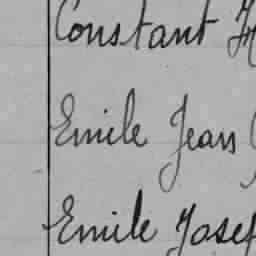 Constant
Emile Jean
Emile Josef